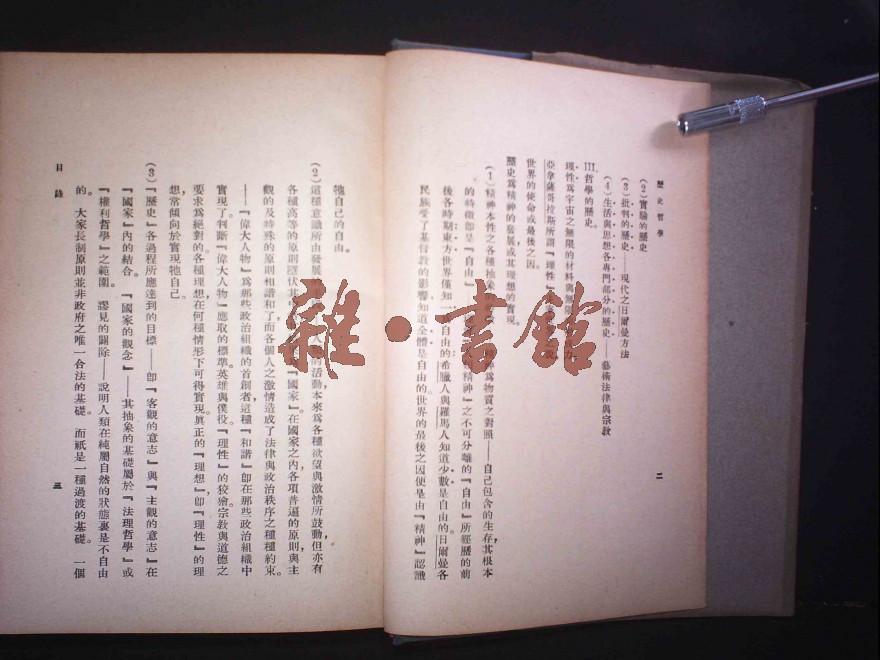 歷史哲學
二
(2) 實驗的歷史
(3) 批判的歷史——現代之日爾曼方法
(4) 生活與思想各專門部分的歷史——藝術法律與宗教
III. 哲學的歷史。
理性爲宇宙之無限的材料與無限
亞拿薩哥拉斯所謂『理性』
世界的使命或最後之因。
歷史爲精神的發展或其理想的實現
(1) 精神本性之各種抽象 神爲物質之對照——自己包含的生存，其根本
的特徵即是『自由』 精神』之不可分離的『自由』所經歷的前
後各時期：東方世界僅知一 自由的希臘人與羅馬人知道少數是自由的。日爾曼各
民族受了基督教的影響，知道全體是自由的。世界的最後之因便是由『精神』認識
牠自己的自由。
(2) 這種意識所由發展的 人 的活動本來爲各種欲望與激情所鼓動，但亦有
各種高等的原則潛伏其 『國家』。在國家之內，各項普遍的原則，與主
觀的及特殊的原則相諧和了，而各個人之激情造成了法律與政治秩序之種種約束。
——『偉大人物』爲那些政治組織的首創者，這種『和諧』即在那些政治組織中
實現了。判斷『偉大人物』應取的標準。英雄與僕役。『理性』的狡獪。宗教與道德之
要求爲絕對的。各種理想在何種情形下可得實現。眞正的『理想』即『理性』的理
想常傾向於實現牠自己。
(3) 『歷史』各過程所應達到的目標——卽『客觀的意志』與『主觀的意志』在
『國家』內的結合。『國家的觀念』——其抽象的基礎屬於『法理哲學』或
『權利哲學』之範圍。謬見的闢除——說明人類在純屬自然的狀態裏是不自由
的。大家長制原則並非政府之唯一合法的基礎。而祇是一種過渡的基礎。一個
目錄
三
雜·書館